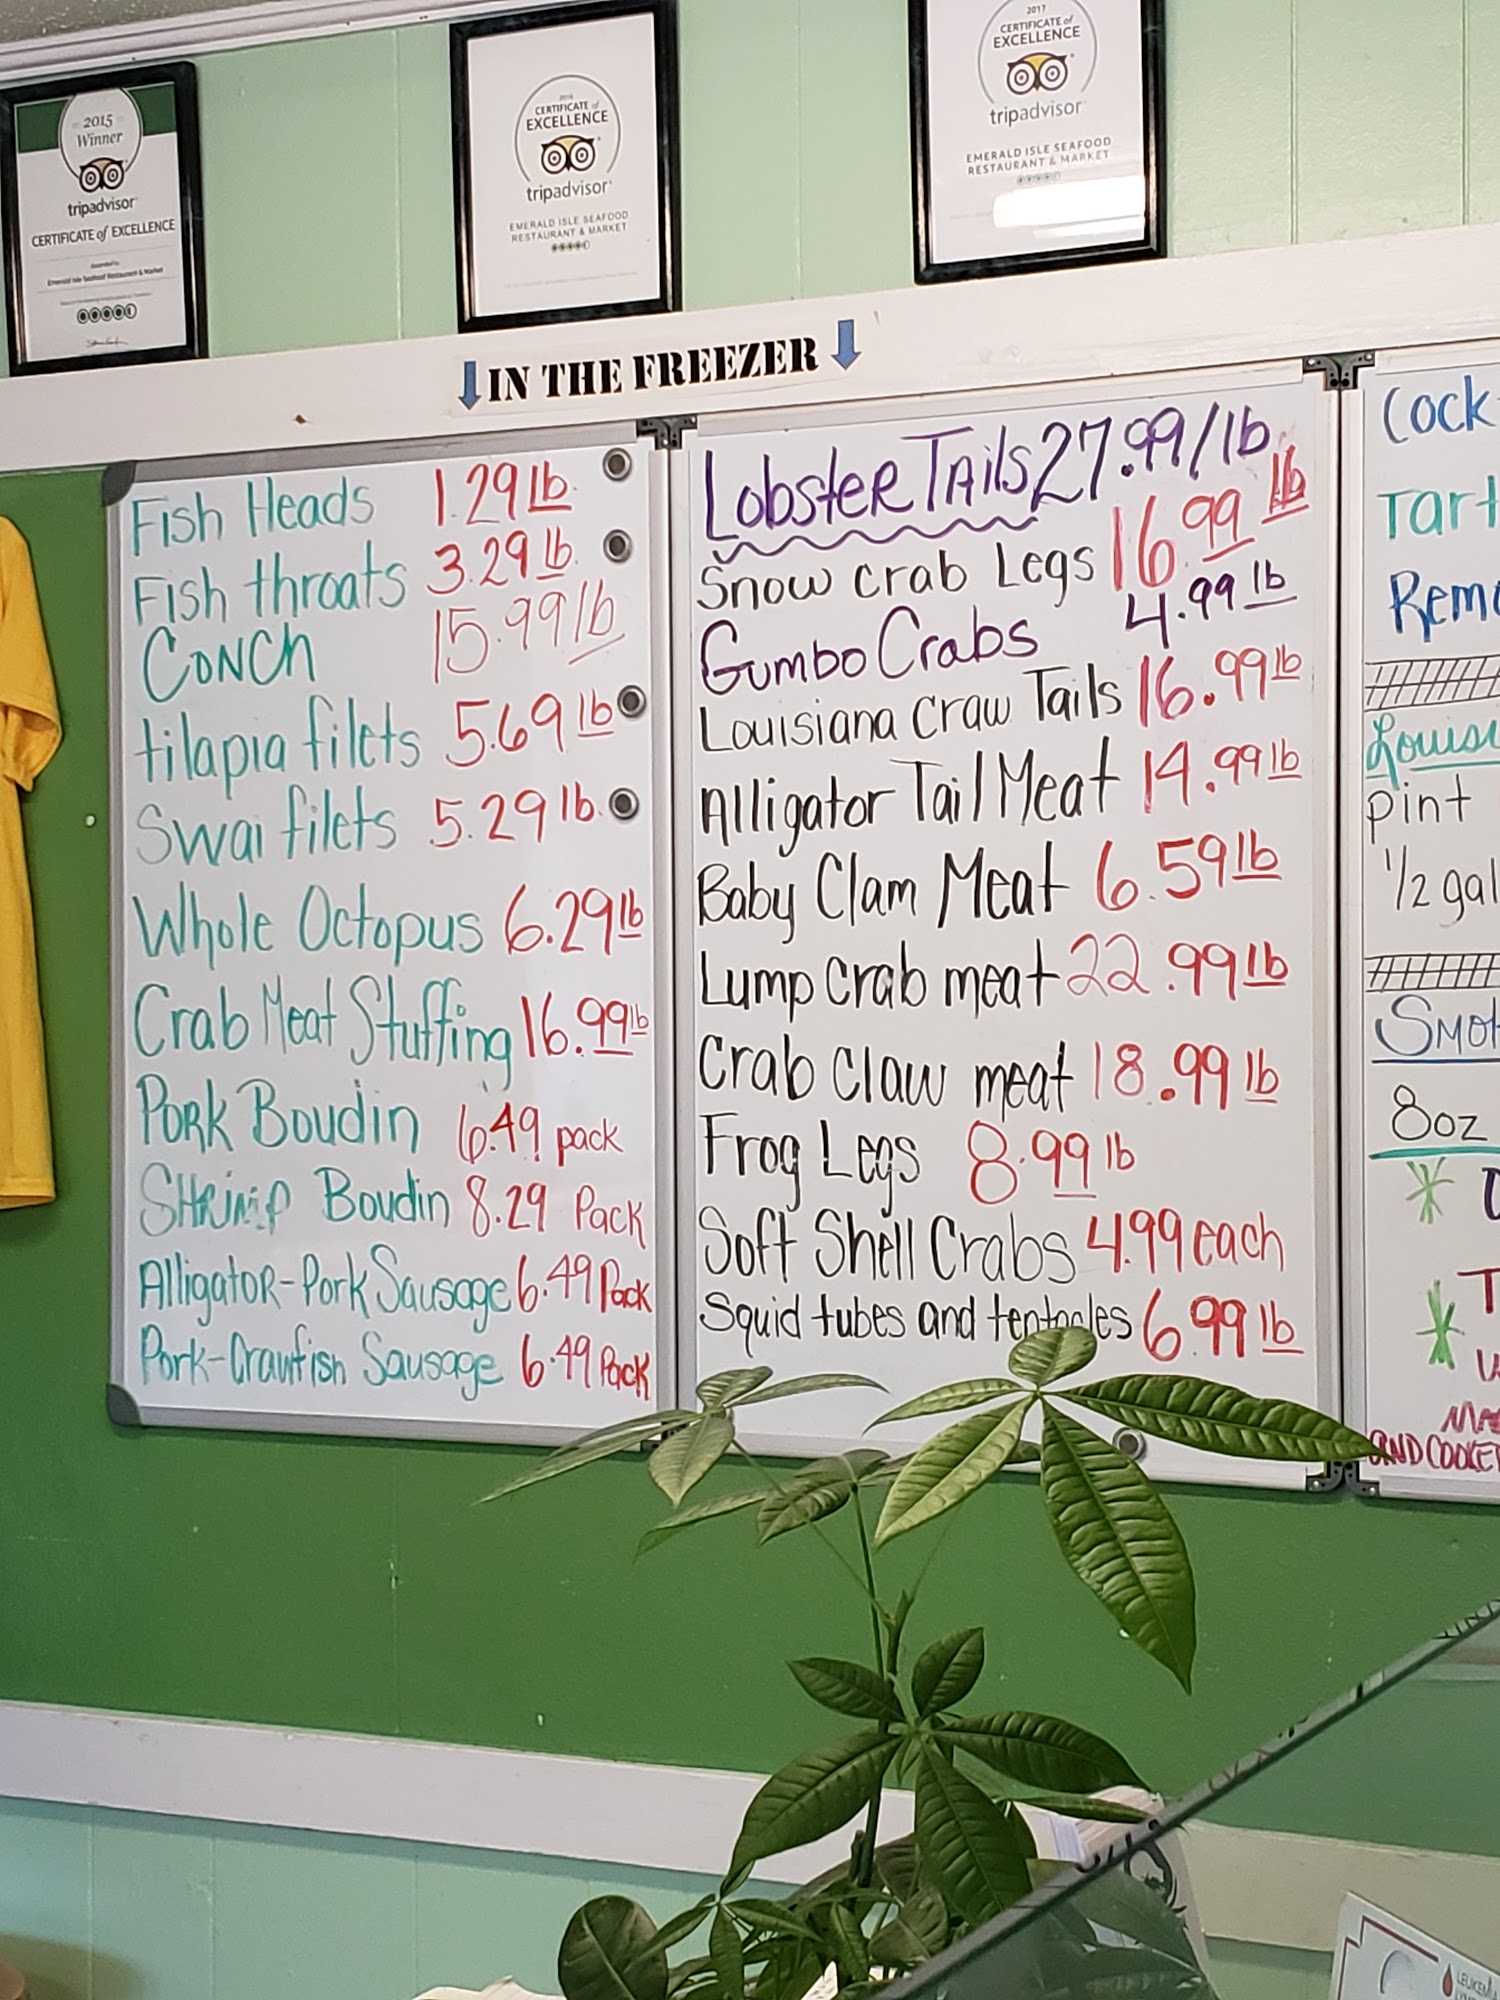 2015
Winner
tripadvisor
CERTIFICATE of EXCELLENCE
Awarded to
Emerald Isle Seafood Restaurant & Market
CERTIFICATE of
EXCELLENCE
tripadvisor
EMERALD ISLE SEAFOOD
RESTAURANT & MARKET
2017
CERTIFICATE of
EXCELLENCE
tripadvisor
EMERALD ISLE SEAFOOD
RESTAURANT & MARKET
IN THE FREEZER
Fish Heads 1.29 lb.
Fish throats 3.29 lb.
CONCh 15.99/lb
tilapia filets 5.69 lb
Swai filets 5.29 lb.
Whole Octopus 6.29 lb
Crab Meat Stuffing 16.99 lb
Pork Boudin 6.49 pack
SHRiMP Boudin 8.29 Pack
Alligator-Pork Sausage 6.49 Pack
Pork-Crawfish Sausage 6.49 Pack
Lobster Tails 27.99/lb
Snow crab Legs 16.99 lb
Gumbo Crabs 4.99 lb
Louisiana Craw Tails 16.99 lb
Alligator Tail Meat 14.99 lb
Baby Clam Meat 6.59 lb
Lump Crab meat 22.99 lb
Crab Claw meat 18.99 lb
Frog Legs 8.99 lb
Soft Shell Crabs 4.99 each
Squid tubes and tentacles 6.99 lb
Cock
Tart
Remo
Louisi
pint
1/2 gal
Smok
8oz
AND COOKE
LEUKEMIA